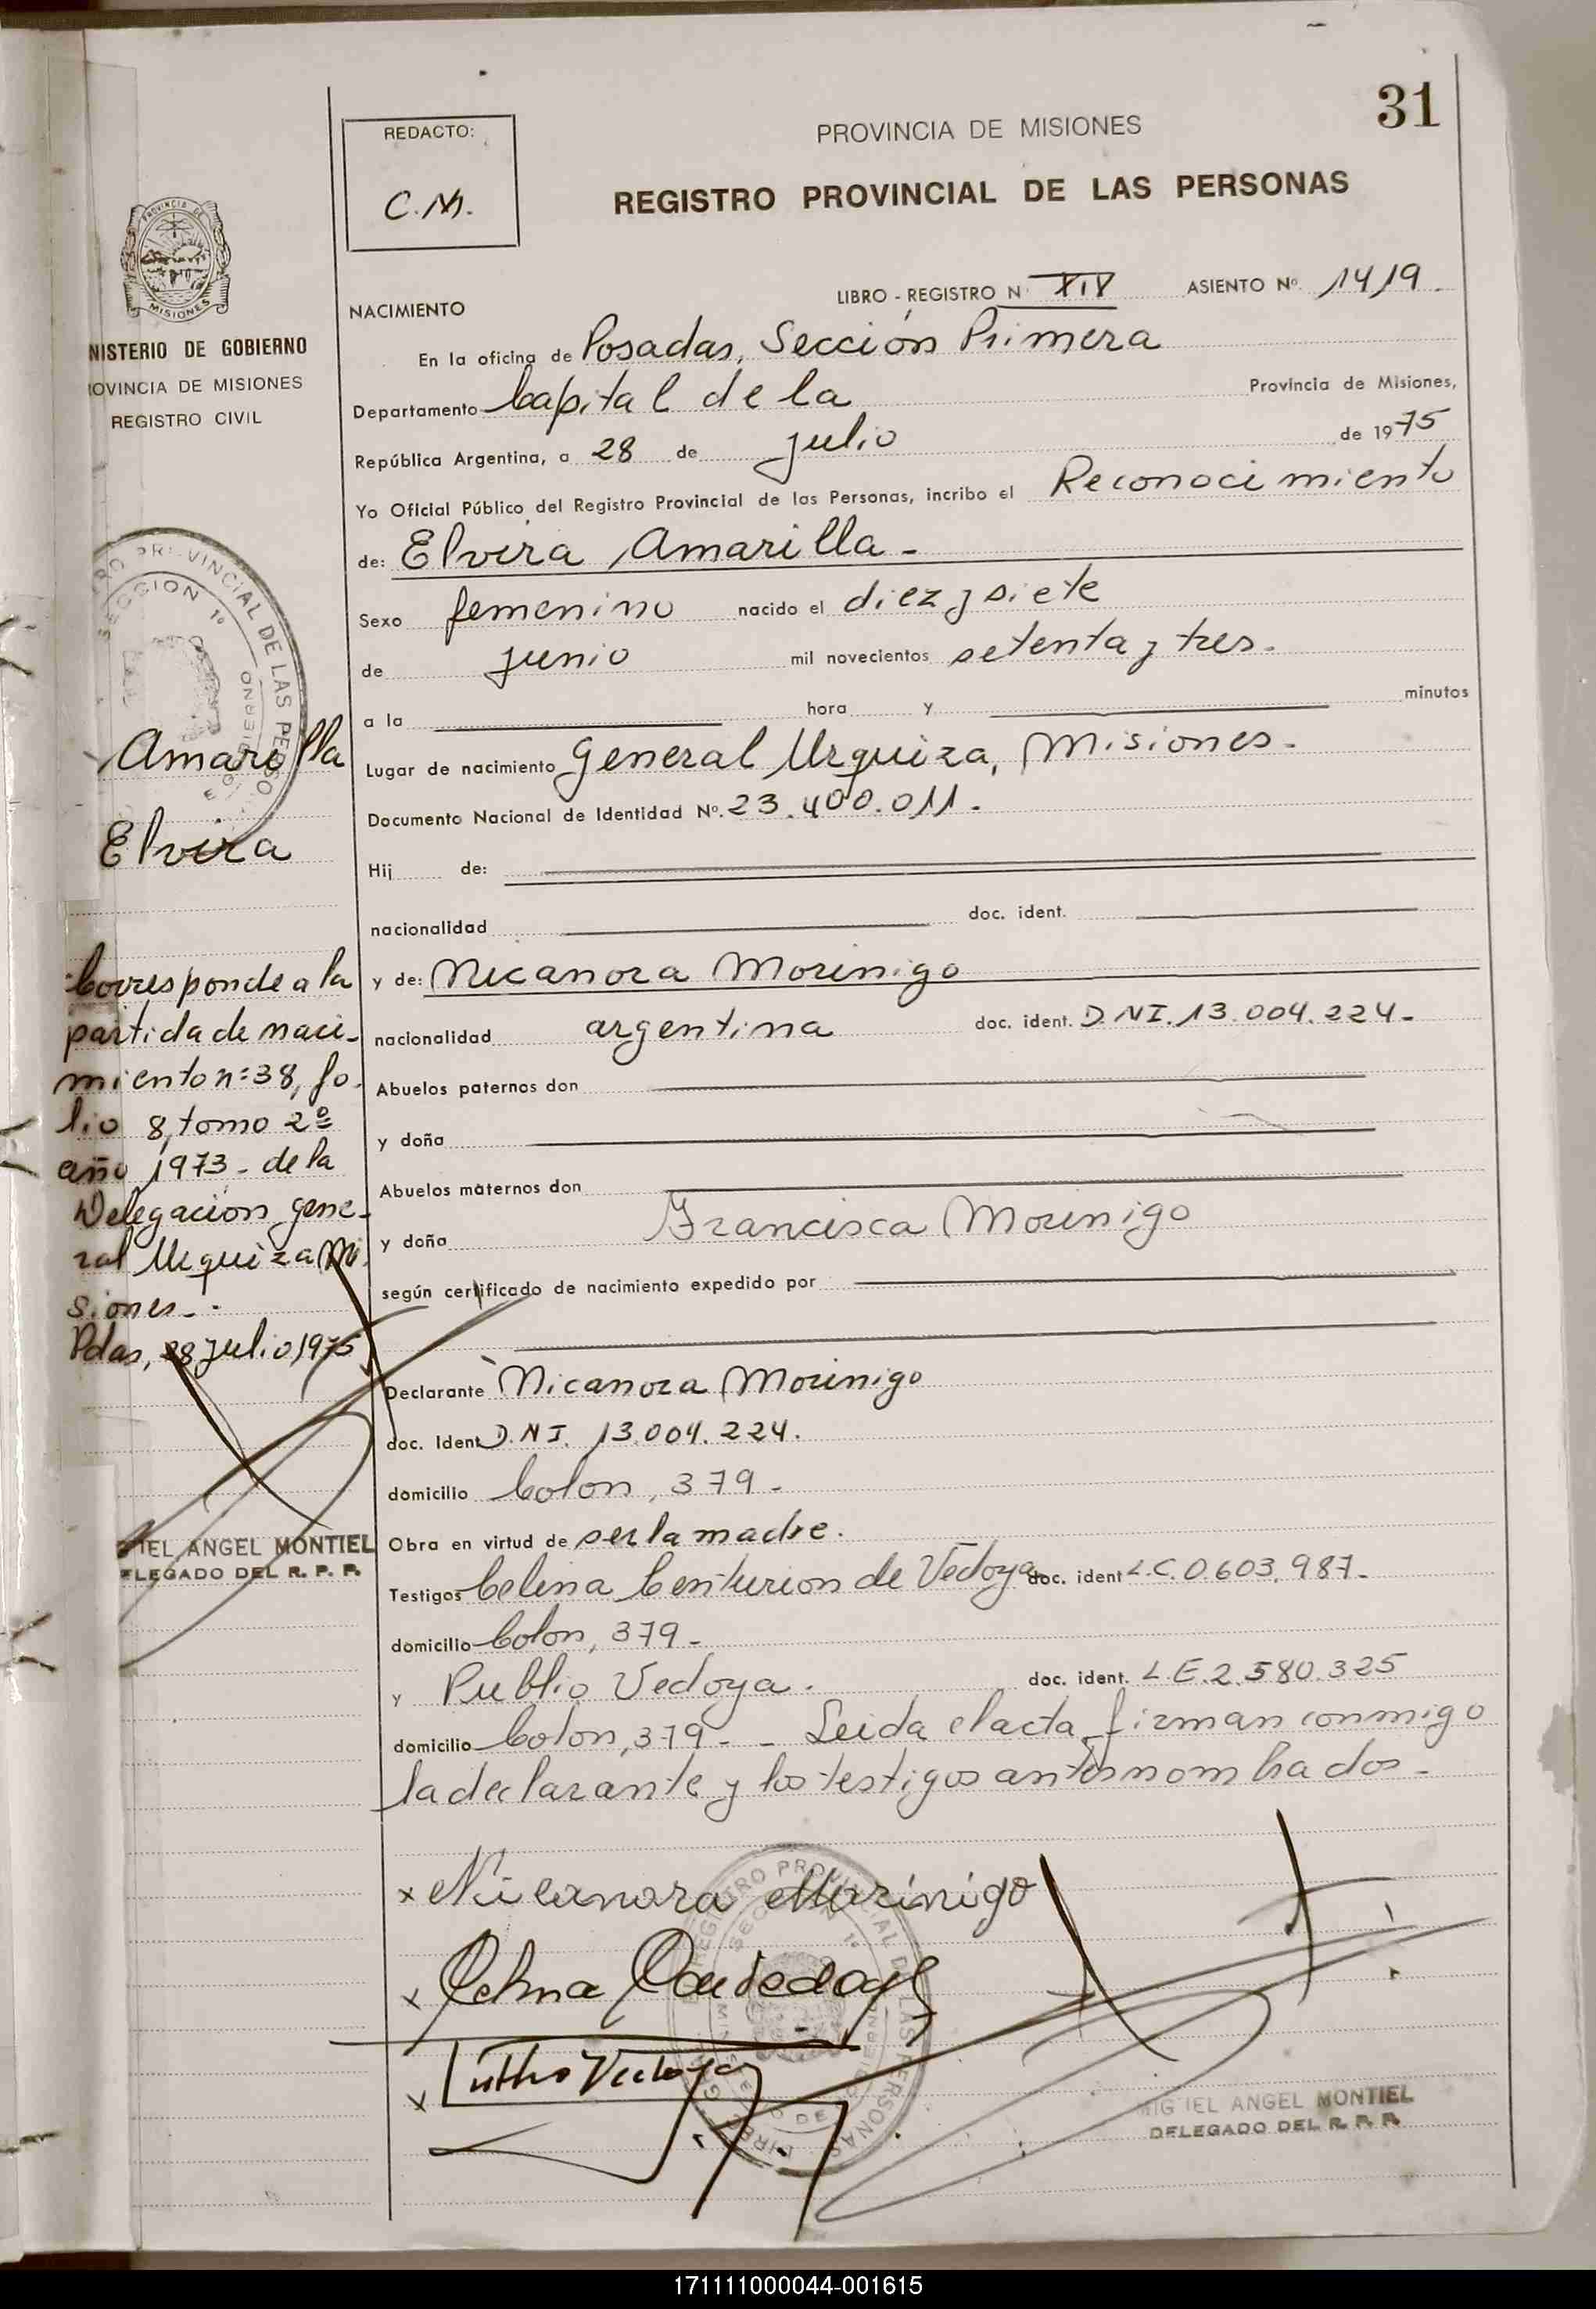 31
REDACTO:
C.M.
PROVINCIA DE MISIONES
REGISTRO PROVINCIAL DE LAS PERSONAS
NISTERIO DE GOBIERNO
OVINCIA DE MISIONES
REGISTRO CIVIL
NACIMIENTO
LIBRO - REGISTRO N XIV ASIENTO Nº 1419.
En la oficina de Posadas, Sección Primera
Departamento Capital de la Provincia de Misiones,
República Argentina, a 28 de julio de 1975
Yo Oficial Público del Registro Provincial de las Personas, incribo el Reconocimiento
de: Elvira Amarilla-
Sexo femenino nacido el diez y siete
de junio mil novecientos setenta y tres.
a la hora y minutos
Lugar de nacimiento General Urquiza, Misiones.
Documento Nacional de Identidad Nº. 23.400.011.
Hij de:
nacionalidad doc. ident.
y de: Nicanora Morinigo
nacionalidad argentina doc. ident. D.N.I. 13.004.224-
Abuelos paternos don
y doña
Abuelos maternos don
y doña Francisca Morinigo
según certificado de nacimiento expedido por
Declarante Nicanora Morinigo
doc. Ident D.N.I. 13.004.224.
domicilio Colon, 379-
Obra en virtud de ser la madre.
Testigos Celina Centurion de Vedoya doc. ident L.C.0.603.987-
domicilio Colon, 379-
y Publio Vedoya. doc. ident. L.E.2.580.325
domicilio Colon, 379- - Leida el acta firman conmigo
la declarante y los testigos antes nombrados-
x Nicanora Morinigo
x
x
MIG IEL ANGEL MONTIEL
DELEGADO DEL R. P. P.
Amarilla
Elvira
Corresponde a la
partida de naci-
miento nº 38, fo-
lio 8, tomo 2º
año 1973- de la
Delegación Gene-
ral Urquiza Mi-
siones-.
Pdas, 28 julio 1975
IEL ANGEL MONTIEL
ELEGADO DEL R. P. P.
171111000044-001615